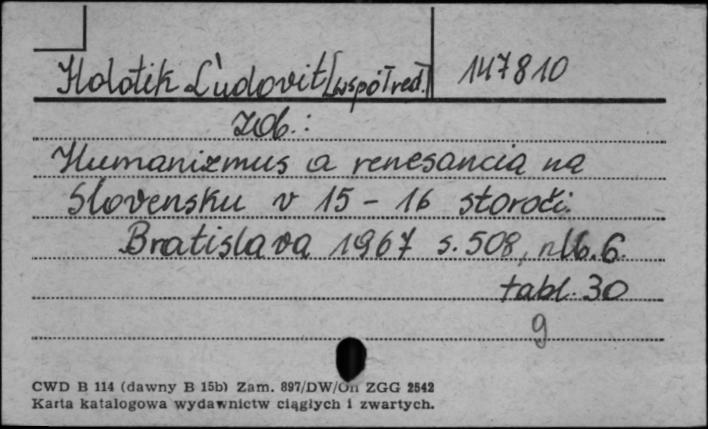 Holotik L'udovit [współred.] 147810
zob.:
Humanizmus a renesancia na
Slovensku v 15 - 16 storočí.
Bratislava 1967 s. 508, nlb. 6.
tabl. 30
g
CWD B 114 (dawny B 15b) Zam. 897/DW/On ZGG 2542
Karta katalogowa wydawnictw ciągłych i zwartych.